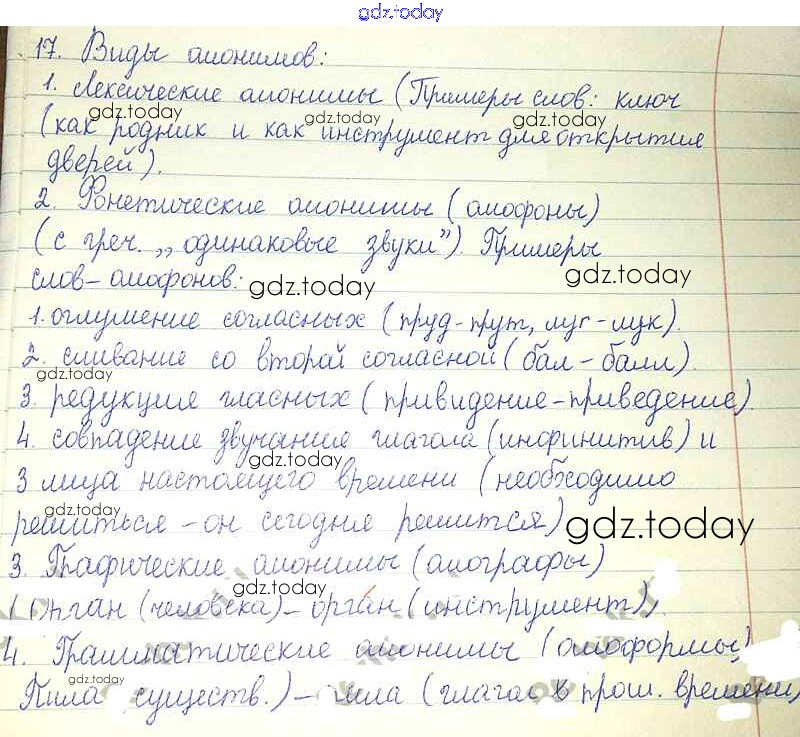 gdz.today
17. Виды омонимов:
1. Лексические омонимы (Примеры слов: ключ
gdz.today gdz.today gdz.today
(как родник и как инструмент для открытия
дверей).
2. Фонетические омонимы (омофоны)
(с греч. „одинаковые звуки"). Примеры
слов-омофонов:
gdz.today gdz.today
1. оглушение согласных (пруд-прут, луг-лук).
2. сливание со второй согласной (бал-балл).
gdz.today
3. редукция гласных (привидение-приведение)
4. совпадение звучания глагола (инфинитив) и
gdz.today
3 лица настоящего времени (необходимо
решиться - он сегодня решится)
gdz.today
3. Графические омонимы (омографы)
gdz.today
(Орган (человека) - орган (инструмент),
4. Грамматические омонимы (омоформы)
gdz.today
Пила существ.) - пила (глагол в прош. времени)